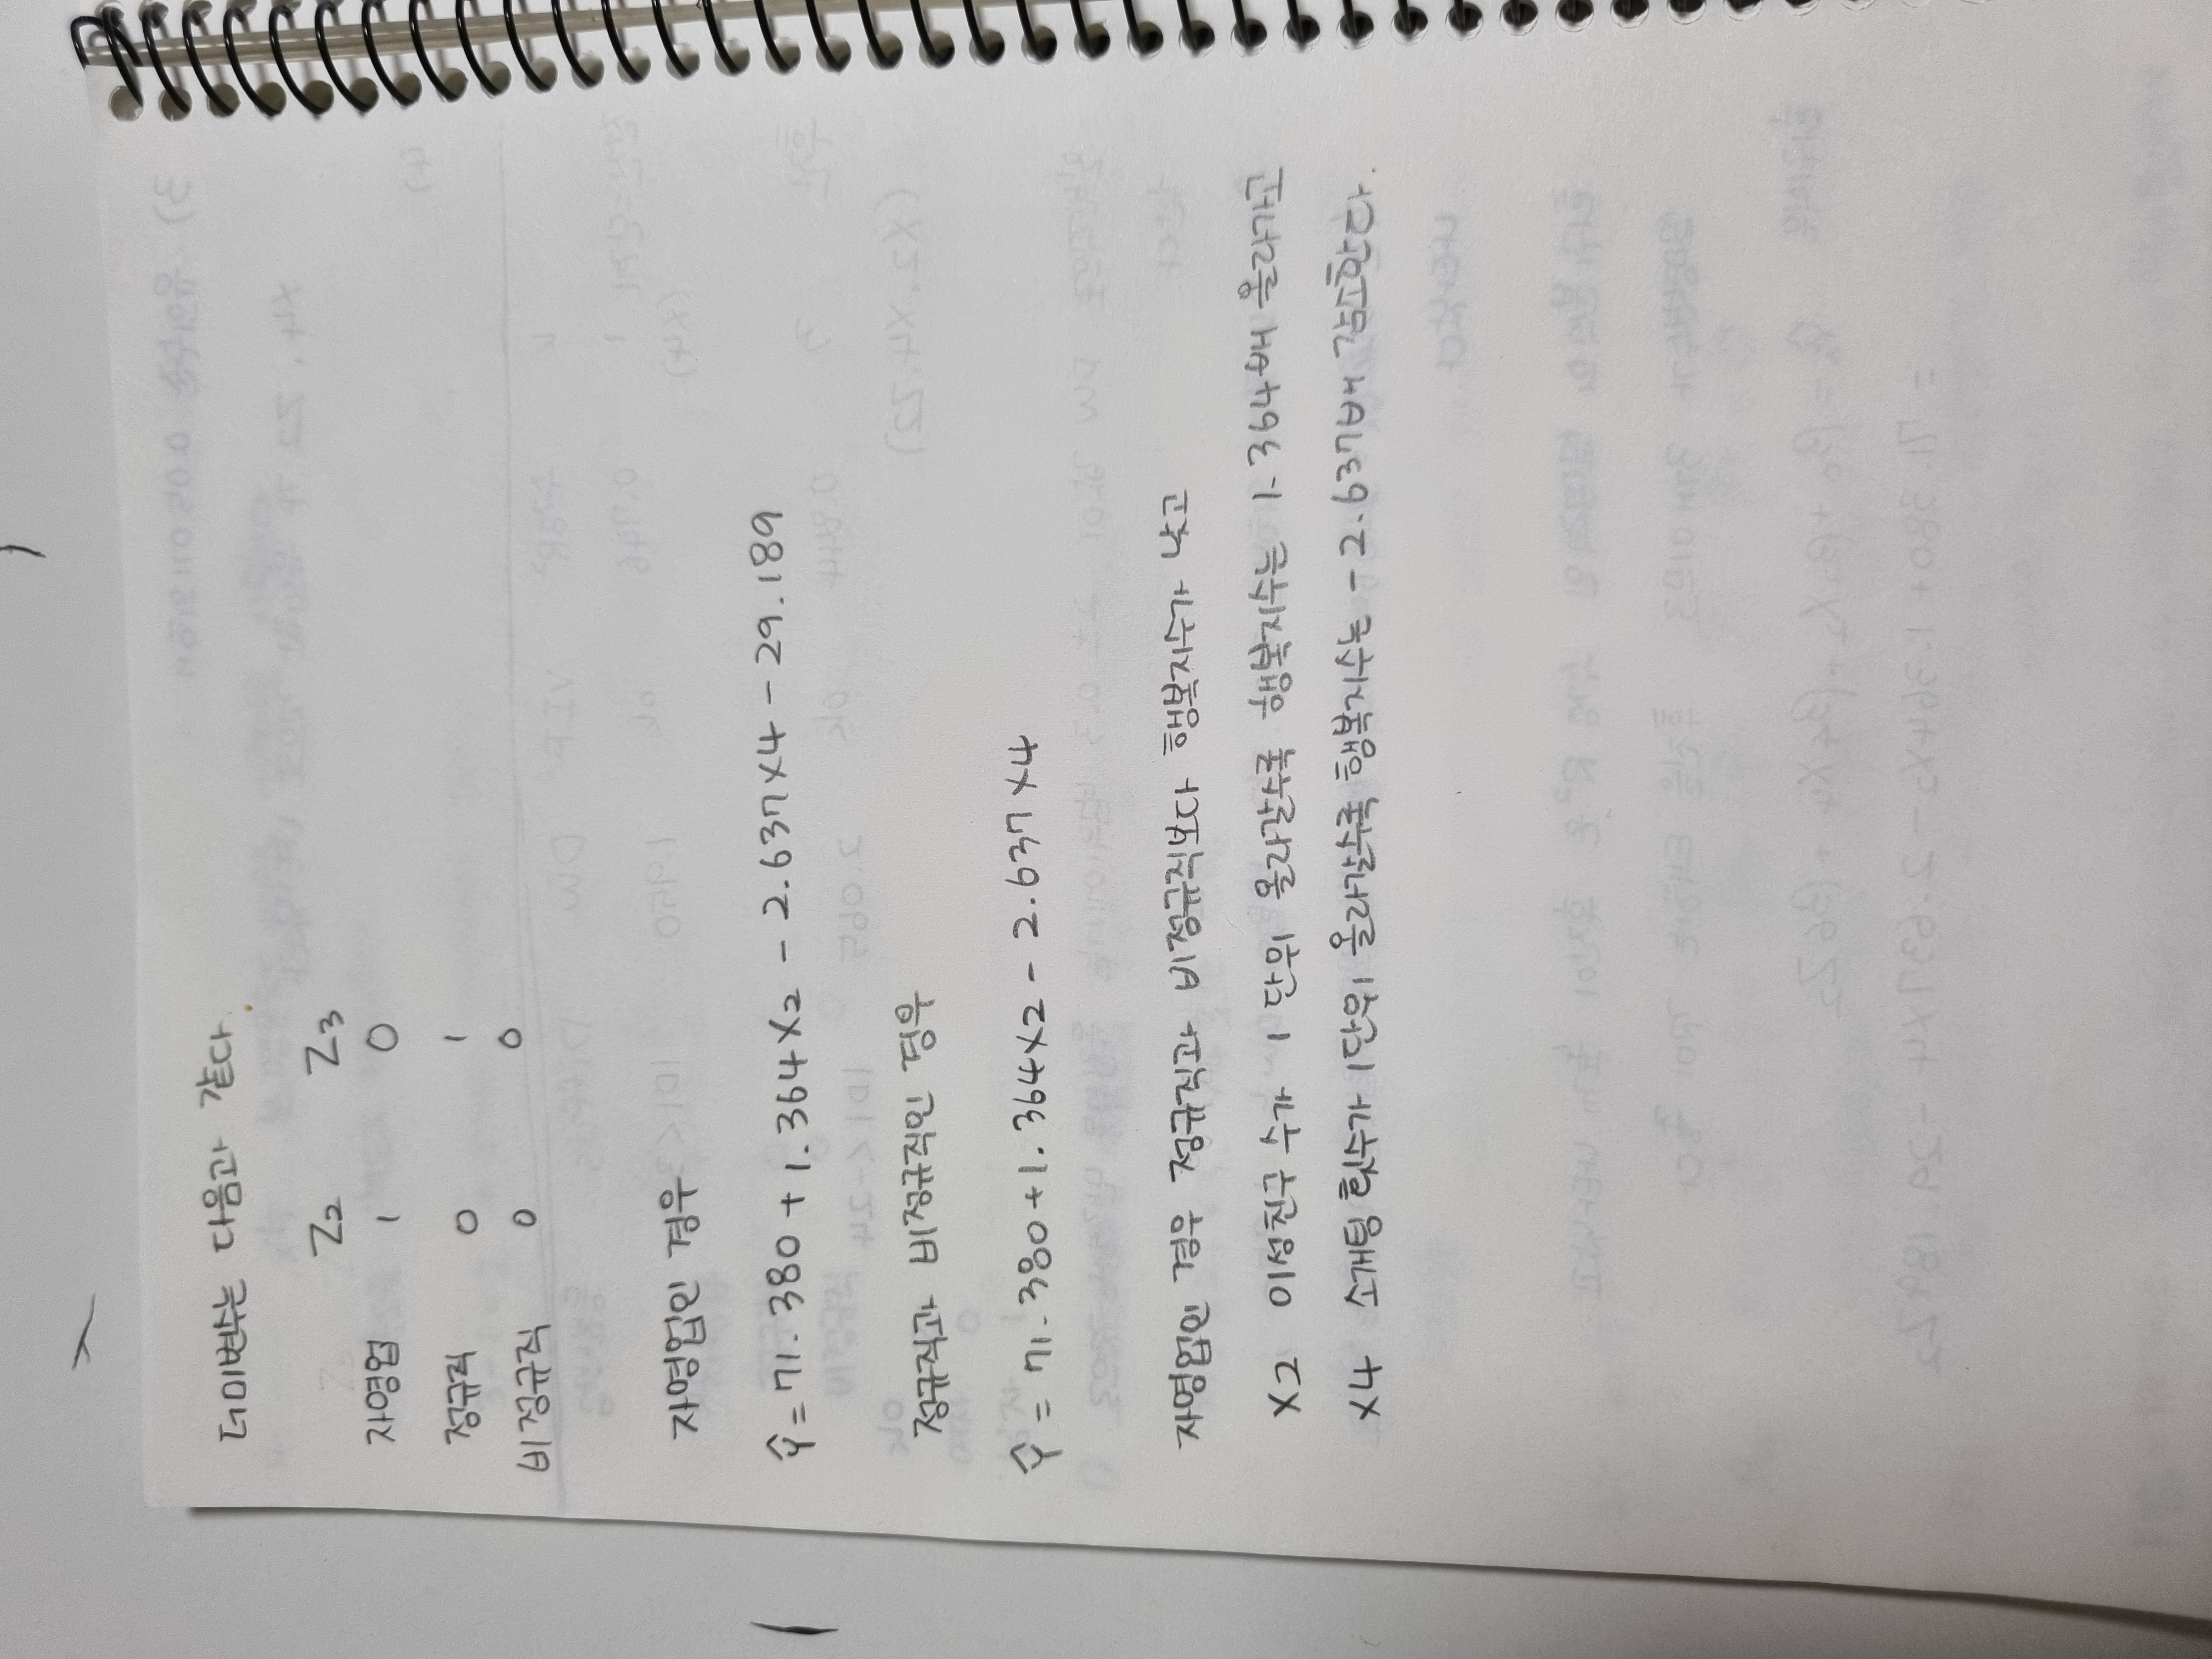 더미변수는 다음과 같다.
Z2 Z3
자영업 1 0
정규직 0 1
비정규직 0 0
자영업인 경우
Ŷ = 71.380 + 1.364X2 - 2.637X4 - 29.189
정규직과 비정규직인 경우
Ŷ = 71.380 + 1.364X2 - 2.637X4
자영업인 경우 정규직과 비정규직보다 행복지수가 낮고
X2 이성친구 수가 1 단위 올라갈수록 행복지수는 1.364배 올라가고
X4 소개팅 횟수가 1단위 올라갈수록 행복지수는 -2.637배 감소한다.